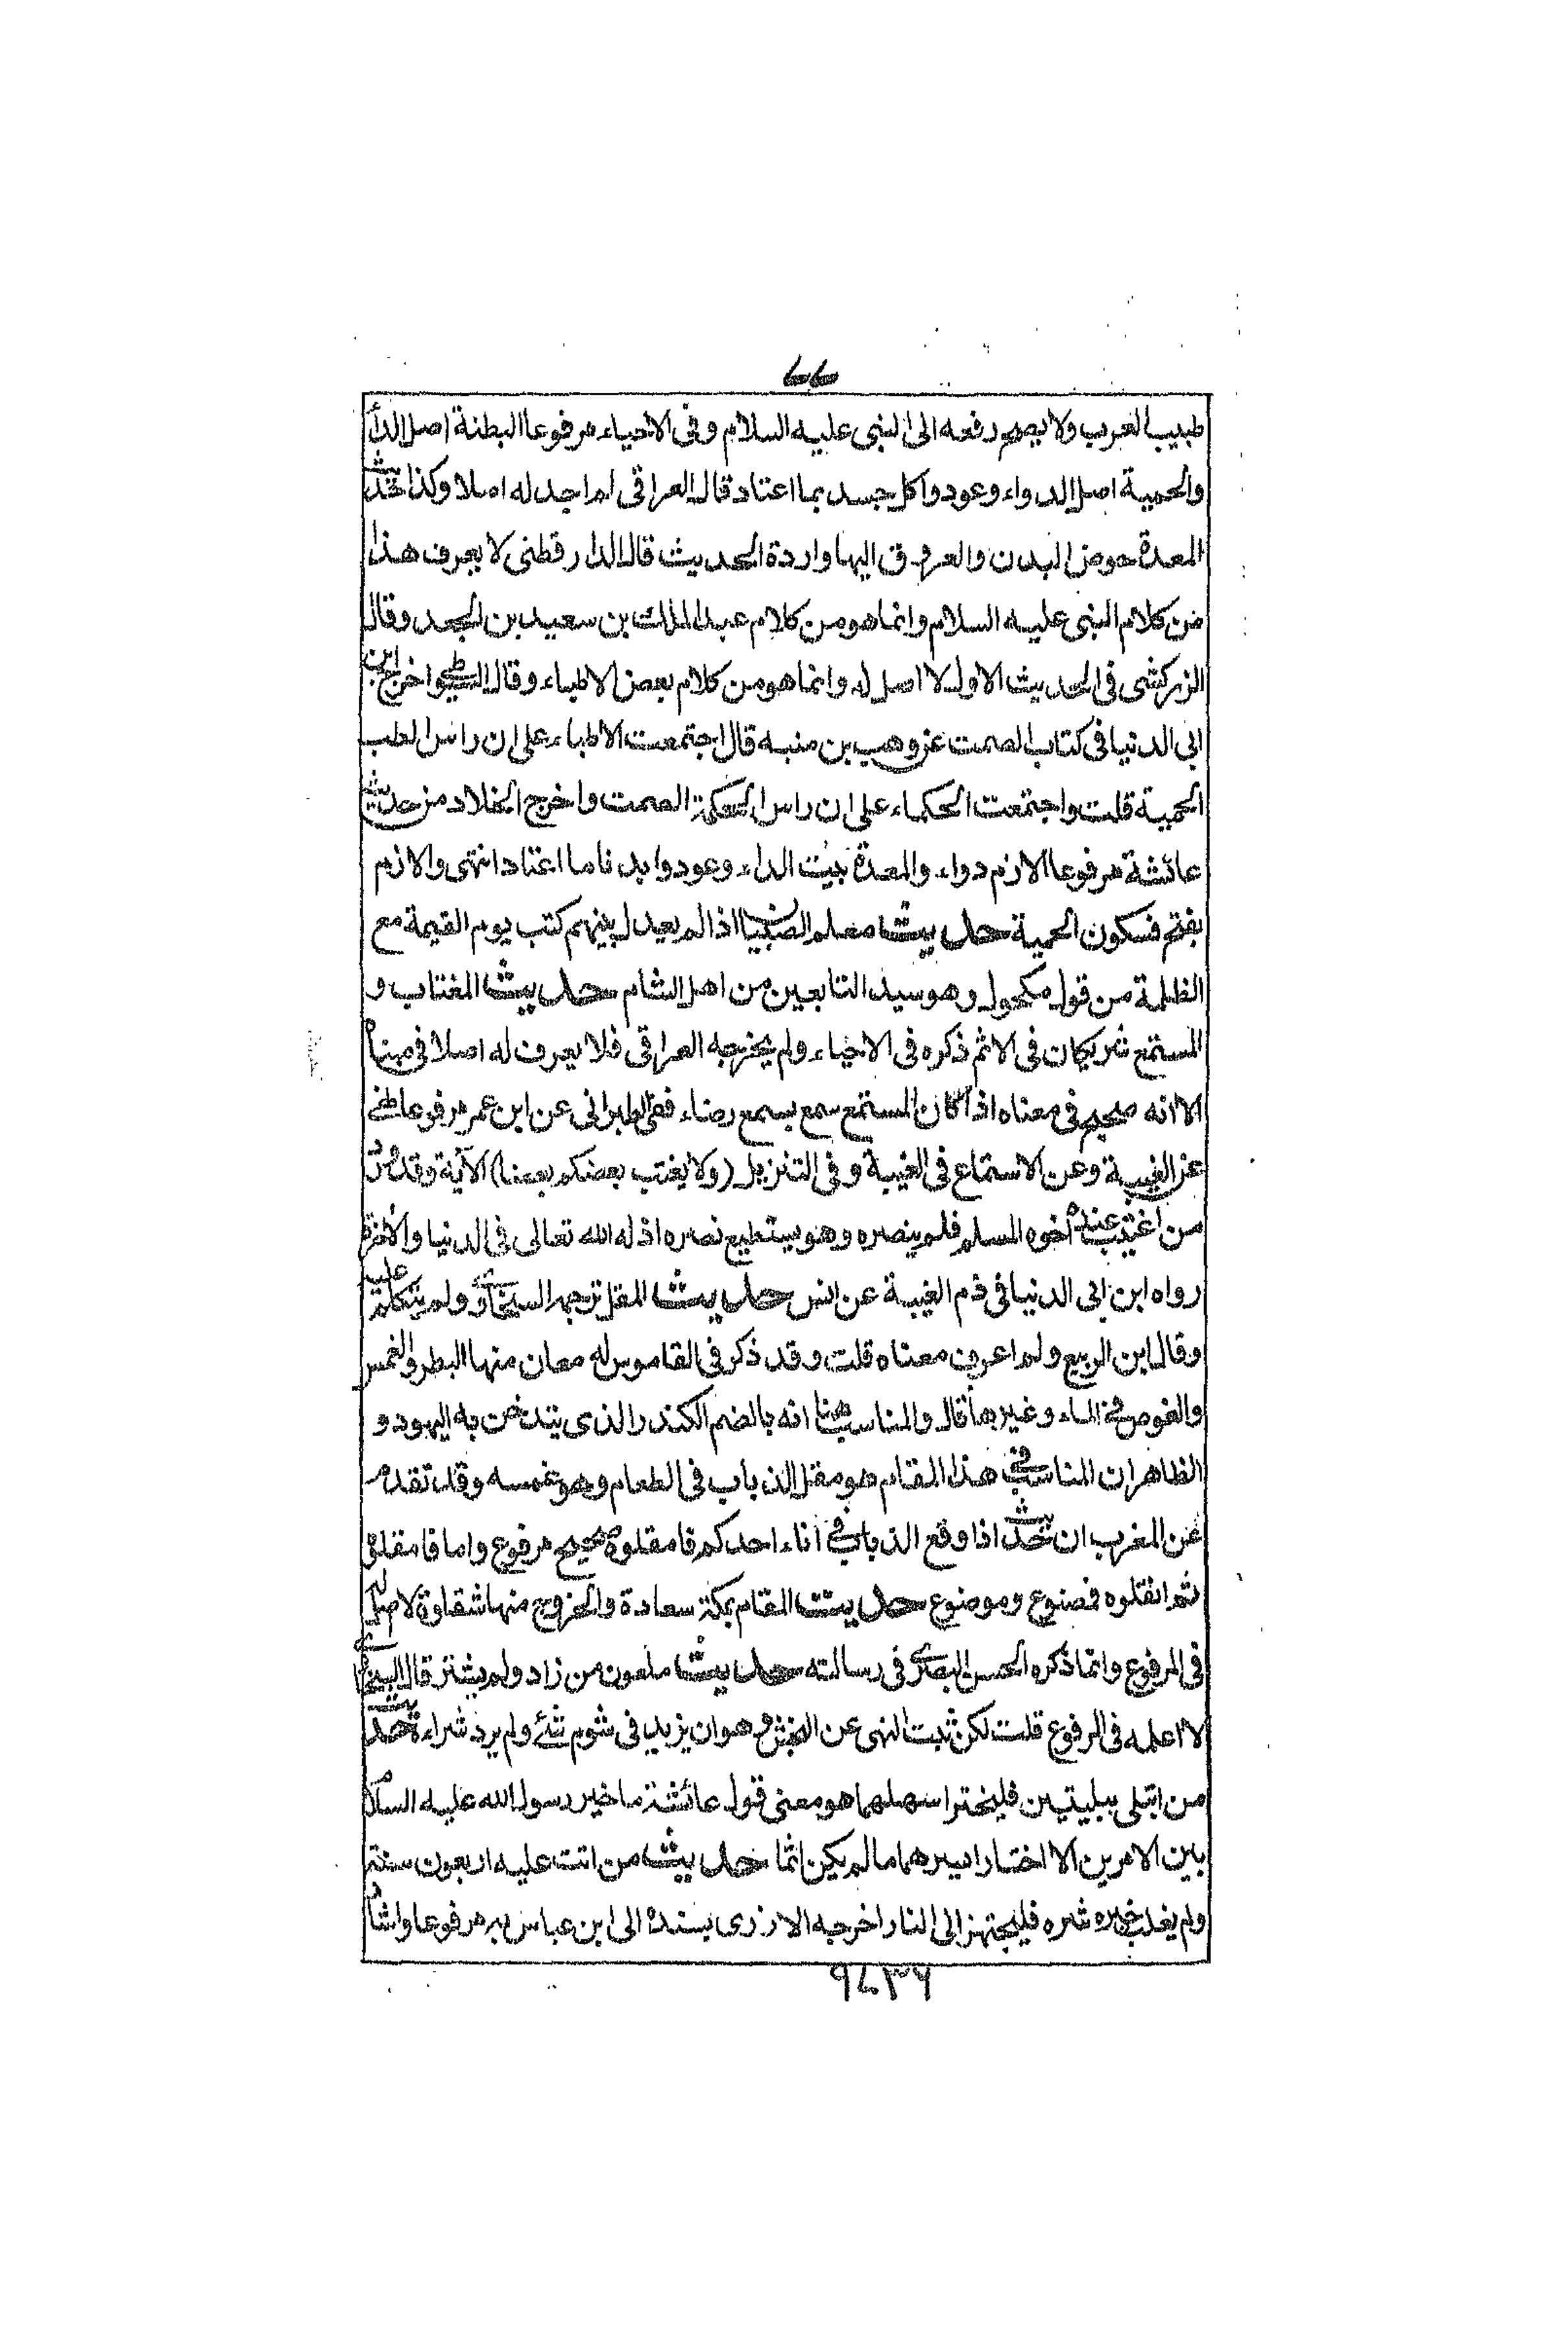 ٧٧
طبيب العرب ولا يصح رفعه الى النبى عليه السلام وفى الاحياء مرفوعا البطنة اصل الداء
والحمية اصل الدواء وعودوا كل جسد بما اعتاد قال العراقى لم اجد له اصلا وكذا حديث
المعدة حوض البدن والعروق اليها واردة الحديث قال الدارقطنى لا يعرف هذا
من كلام النبى عليه السلام وانما هو من كلام عبد الملك بن سعيد بن الجعد وقال
الزركشى فى الحديث الاول لا اصل له وانما هو من كلام بعض الاطباء وقال السيوطى اخرج ابن
ابى الدنيا فى كتاب الصمت عن وهب بن منبه قال اجتمعت الاطباء على ان راس الطب
الحمية قلت واجتمعت الحكماء على ان راس الحكمة الصمت واخرج الخلاد من حديث
عائشة مرفوعا الازم دواء والمعدة بيت الداء وعودوا بدنا ما اعتاد انتهى والازم
بفتح فسكون الحمية حديث معلم الصبيان اذا لم يعدل بينهم كتب يوم القيمة مع
الظلمة من قول مكحول وهو سيد التابعين من اهل الشام حديث المغتاب و
المستمع شريكان فى الاثم ذكره فى الاحياء ولم يخرجه العراقى فلا يعرف له اصلا فى مبناه
الا انه صحيح فى معناه اذا كان المستمع سمع بسمع رضاء ففى الطبرانى عن ابن عمر مرفوعا نهى
عن الغيبة وعن الاستماع فى الغيبة وفى التنزيل (ولا يغتب بعضكم بعضا) الآية وقد ورد
من اغتيب عنده اخوه المسلم فلم ينصره وهو يستطيع نصره اذله الله تعالى فى الدنيا والآخرة
رواه ابن ابى الدنيا فى ذم الغيبة عن انس حديث المقل ترجمه السخاوى ولم يتكلم عليه
وقال ابن الربيع ولم اعرف معناه قلت وقد ذكر فى القاموس له معان منها البطر والغمس
والغوص فى الماء وغيرها قال والمناسب هنا انه بالضم الكندر الذى يتدخن به اليهود و
الظاهر ان المناسب فى هذا المقام هو مقل الذباب فى الطعام وهو غمسه وقد تقدم
عن المغرب ان حديث اذا وقع الذباب فى اناء احدكم فامقلوه صحيح مرفوع واما فامقلوه
ثم انقلوه فمصنوع وموضوع حديث المقام بمكة سعادة والخروج منها شقاوة لا اصل له
فى المرفوع وانما ذكره الحسن البصرى فى رسالته حديث ملعون من زاد ولم يشتر قال السخاوى
لا اعلمه فى المرفوع قلت لكن ثبت النهى عن النجش وهو ان يزيد فى شوم شئ ولم يرد شراءه حديث
من ابتلى ببليتين فليختر اسهلهما هو معنى قول عائشة ما خير رسول الله عليه السلام
بين الامرين الا اختار ايسرهما ما لم يكن اثما حديث من اتت عليه اربعون سنة
ولم يغلب خيره شره فليجتهز الى النار اخرجه الازدى بسنده الى ابن عباس به مرفوعا واشار